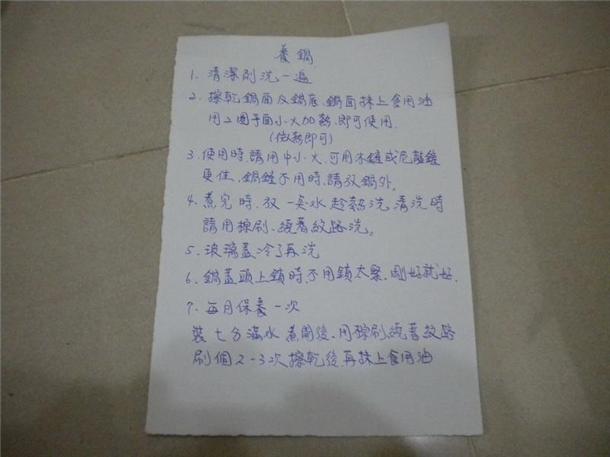 養鍋
1. 清潔刷洗一遍
2. 擦乾鍋面及鍋底、鍋面抹上食用油
用2圈子面小火加熱、即可使用.
(微熱即可)
3. 使用時、請用中小火、可用木鏟或
更佳、鍋鏟不用時、請放鍋外。
4. 煮完時、放一点水趁熱洗、清洗時
請用棕刷、順著紋路洗。
5. 玻璃蓋冷了再洗
6. 鍋蓋頭上鎖時、不用鎖太緊、剛好就好.
7. 每月保養一次
裝七分滿水煮開後、用棕刷順著紋路
刷個2-3次擦乾後再抹上食用油